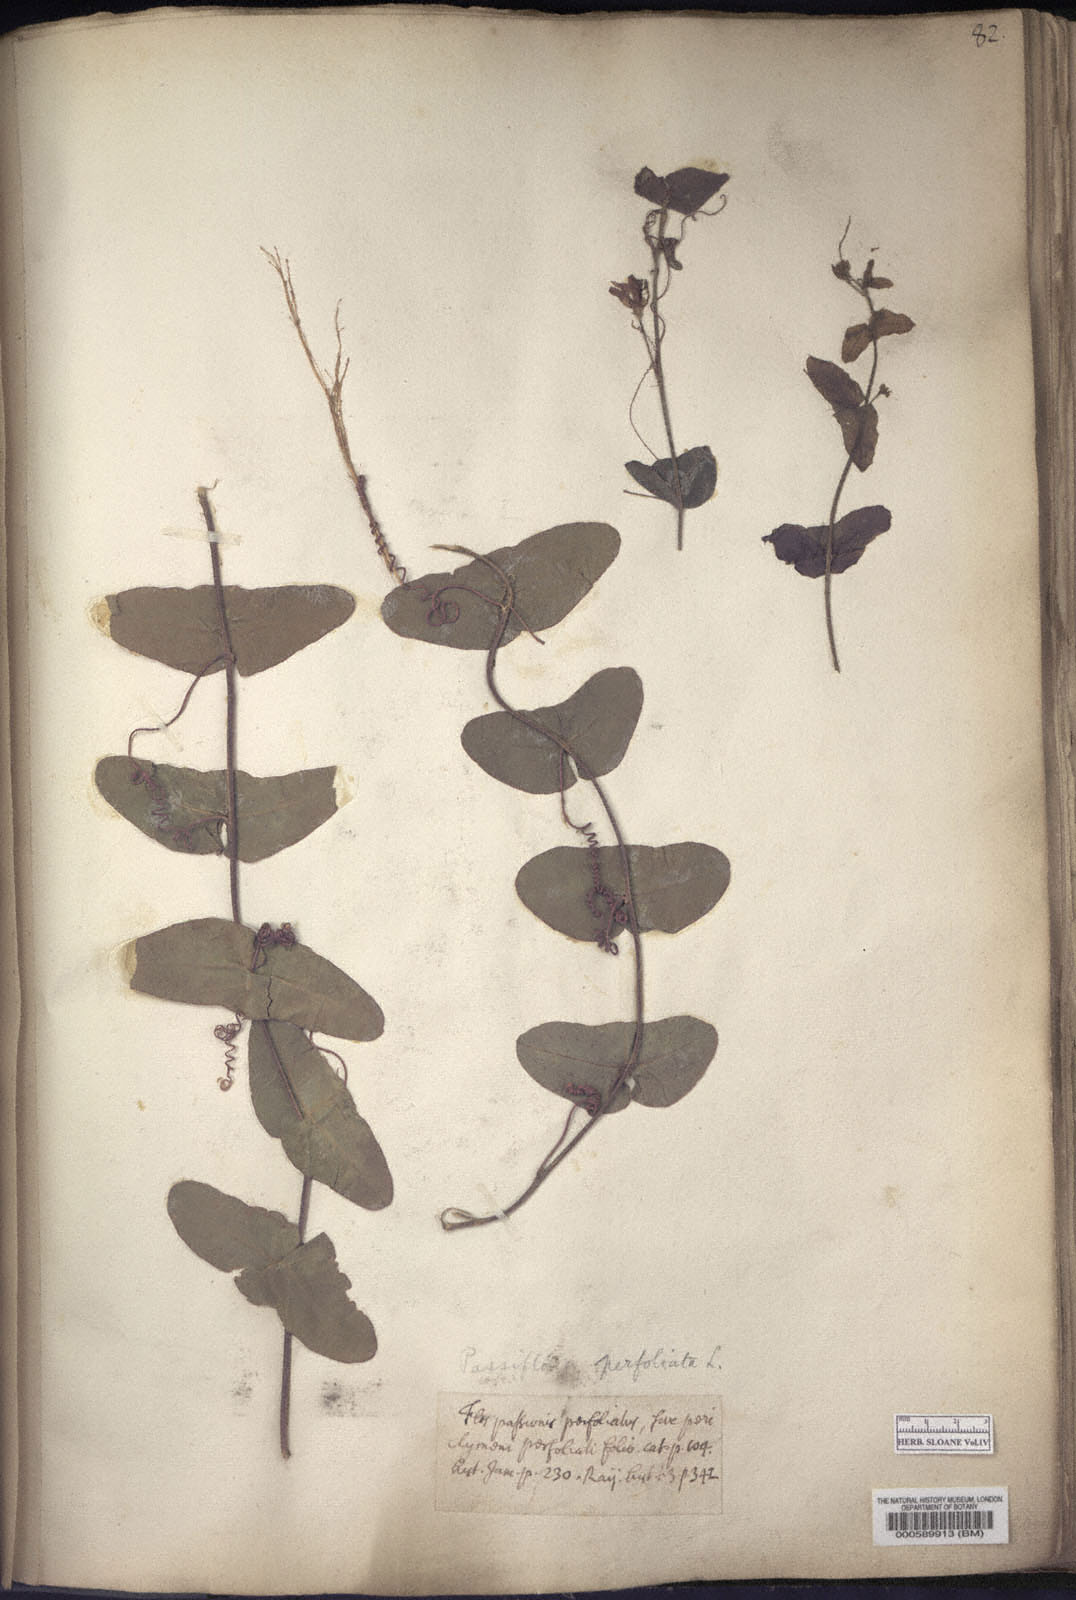 82.
Passiflora perfoliata L.
Flos passionis perfoliatus, sive peri
clymeni perfoliati folio. cat. p. 104.
hist. Jam. p. 230. Raij. hist. 3 p 342
HERB. SLOANE Vol. IV
THE NATURAL HISTORY MUSEUM, LONDON
DEPARTMENT OF BOTANY
000589913 (BM)